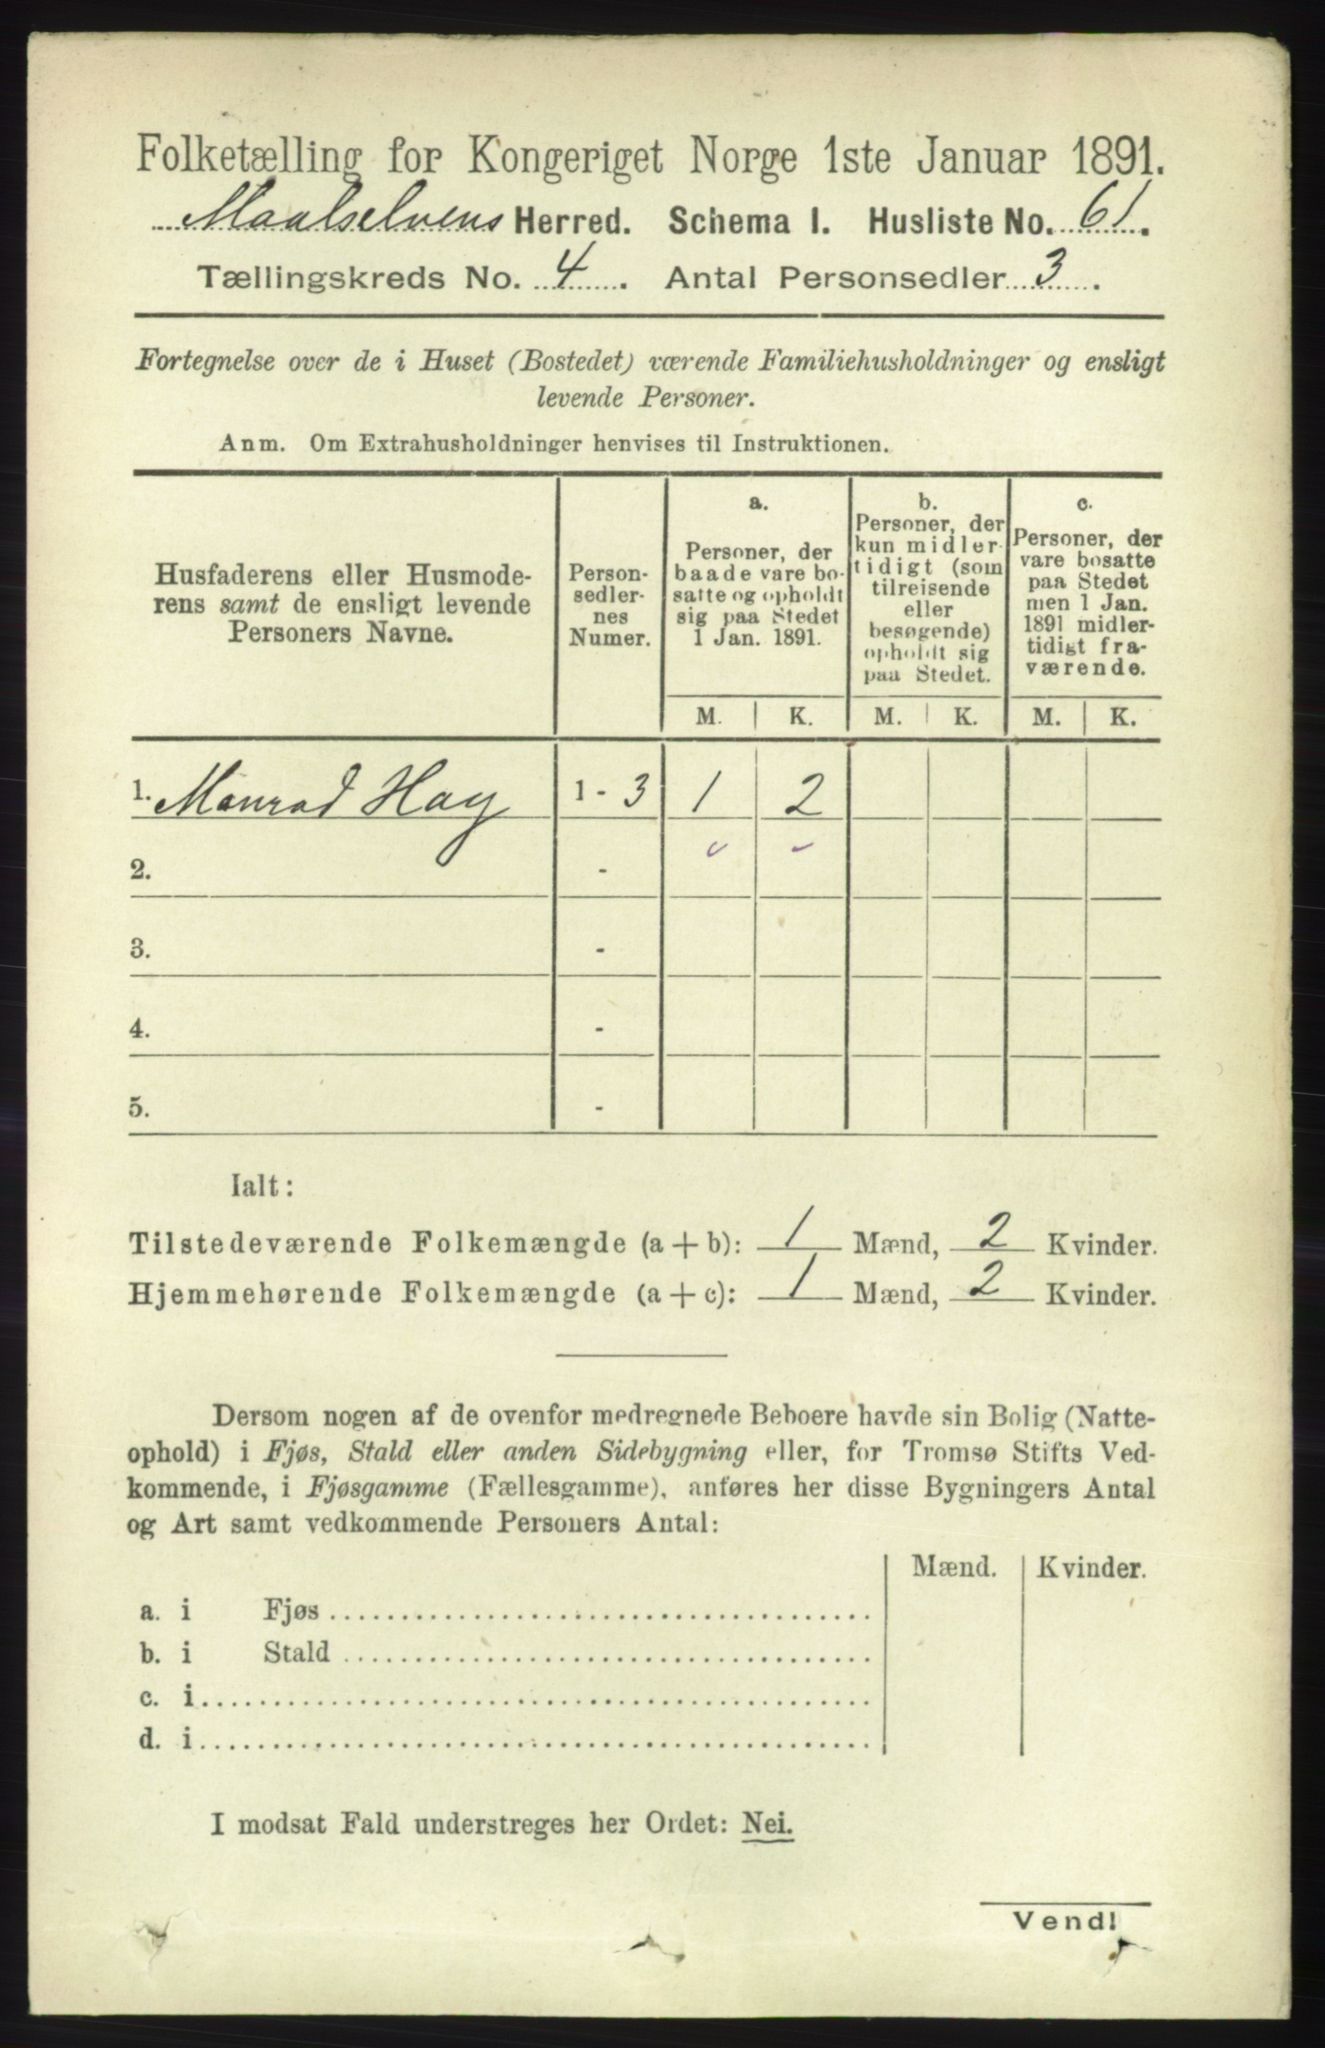 Folketælling for Kongeriget Norge 1ste Januar 1891.
Maalselvens Herred. Schema I. Husliste No. 61.
Tællingskreds No. 4. Antal Personsedler 3.
Fortegnelse over de i Huset (Bostedet) værende Familiehusholdninger og ensligt
levende Personer.
Anm. Om Extrahusholdninger henvises til Instruktionen.
Husfaderens eller Husmode-
rens samt de ensligt levende
Personers Navne.
Person-
sedler-
nes
Numer.
a.
Personer, der
baade vare bo-
satte og opholdt
sig paa Stedet
1 Jan. 1891.
b.
Personer, der
kun midler-
tidigt (som
tilreisende
eller
besøgende)
opholdt sig
paa Stedet.
c.
Personer, der
vare bosatte
paa Stedet
men 1 Jan.
1891 midler-
tidigt fra-
værende.
M. K. M. K. M. K.
1. Monrad Hay 1 - 3 1 2
2. -
3. -
4. -
5. -
Ialt:
Tilstedeværende Folkemængde (a + b): 1 Mænd, 2 Kvinder.
Hjemmehørende Folkemængde (a + c): 1 Mænd, 2 Kvinder.
Dersom nogen af de ovenfor medregnede Beboere havde sin Bolig (Natte-
ophold) i Fjøs, Stald eller anden Sidebygning eller, for Tromsø Stifts Ved-
kommende, i Fjøsgamme (Fællesgamme), anføres her disse Bygningers Antal
og Art samt vedkommende Personers Antal:
Mænd. Kvinder.
a. i Fjøs
b. i Stald
c. i
d. i
I modsat Fald understreges her Ordet: Nei.
Vend!